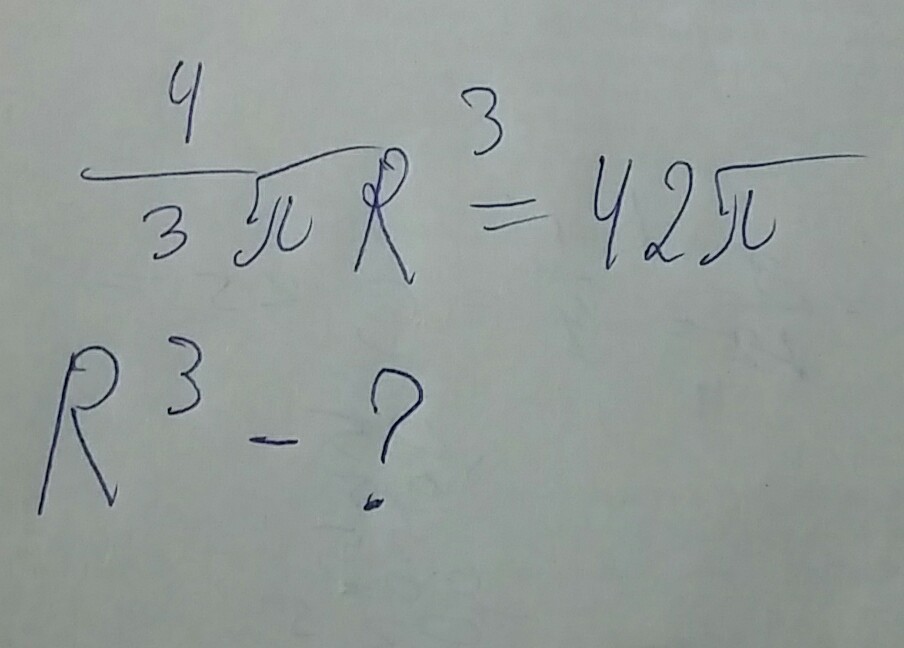 4/3 π R³ = 42π
R³ - ?